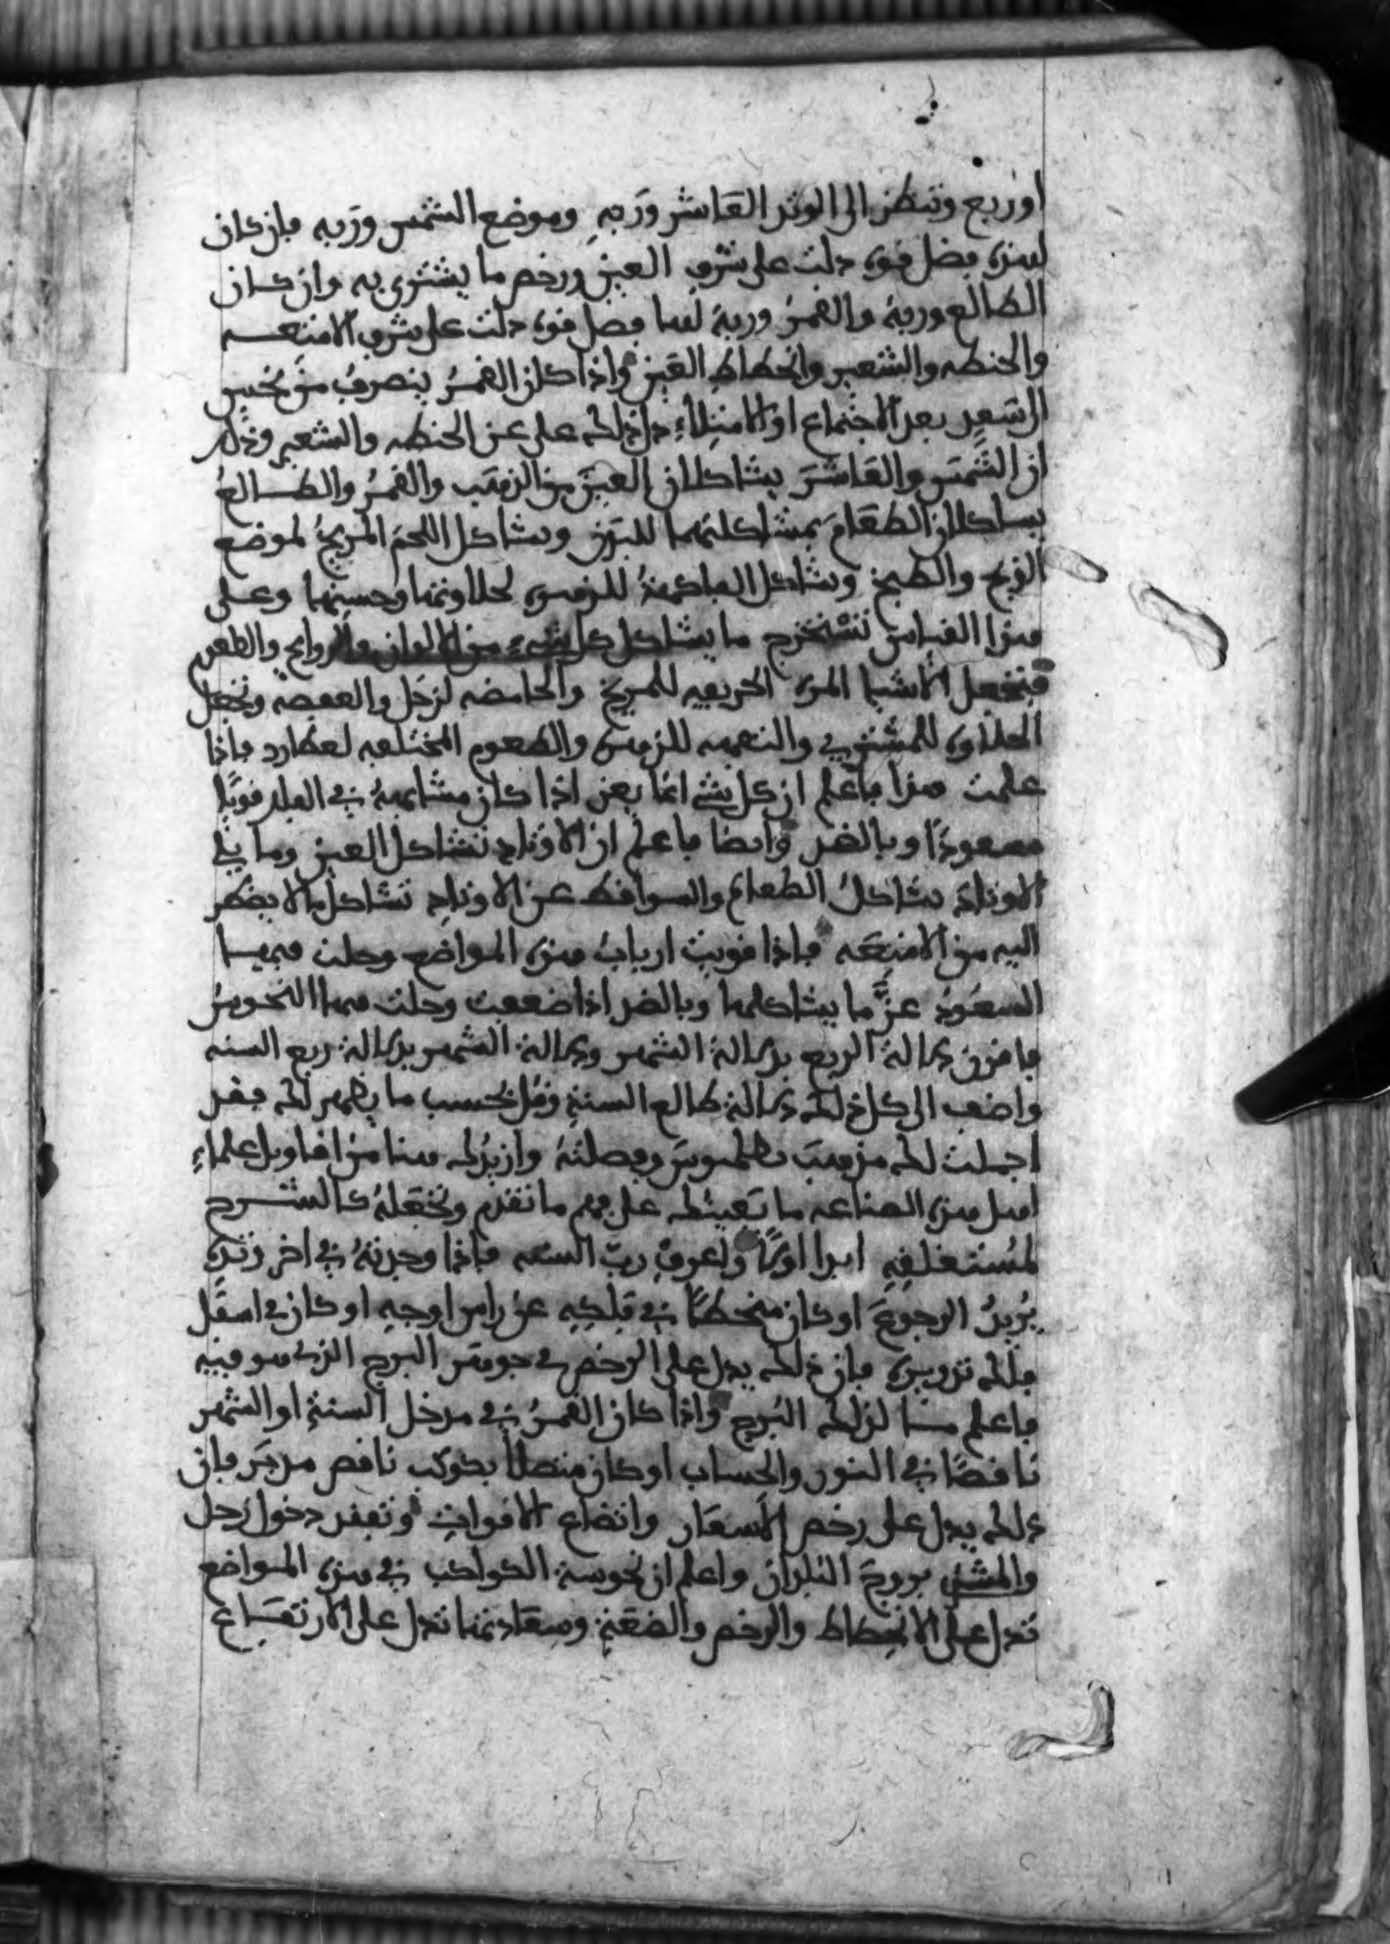 او ربع وتنظر الى الوتد العاشر وربه وموضع الشمس وربه فان كان
لهذه فضل قوه دلت على شرف العين ورخص ما يشترى به وان كان
الطالع وربه والقمر وربه لهما فضل قوه دلت على شرف الامتعه
والحنطه والشعير وانحطاط العين واذا كان القمر ينصرف من نحس
السعير بعد الاجتماع او الامتلاء دل ذلك على عز الحنطه والشعير وذلك
ان الشمس والعاشر يشاكلان العين من الذهب والقمر والطالع
يشاكلان الطعام بمشاكلتهما للبدن ويشاكل اللحم المريخ لموضع
الذبح والطبخ ويشاكل الفاكهة للزهره لحلاوتها وحسنها وعلى
هذا القياس تستخرج ما يشاكل كل شيء من الالوان والروايح والطعوم
فتجعل الاشيا المره الحريفه للمريخ والحامضه لزحل والعفصة وتجعل
الحلاوه للمشتري والتفهه للزهره والطعوم المختلفه لعطارد فاذا
علمت هذا فاعلم ان كل شي انما يعز اذا كان مشابهه في الفلك قويا
مسعودا وبالضد وايضا فاعلم ان الاوتاد تشاكل العين وما يلي
الاوتاد يشاكل الطعام والسواقط عن الاوتاد تشاكل ما لا يضطر
اليه من الامتعه فاذا قويت ارباب هذه المواضع وحلت فيها
السعود عز ما يشاكلها وبالضد اذا ضعفت وحلت فيها النحوس
فامزج دلالة الربع بدلالة الشهر ودلالة الشهر بدلالة ربع السنه
واضف الى كل ذلك دلالة طالع السنه وقل بحسب ما يظهر لك فقد
اجملت لك مذهب بطلميوس وفصلته وازيدك هنا من اقاويل علماء
اهل هذه الصناعه ما يعينك على فهم ما تقدم وتجعله كالشرح
لمستغلقه ابدا اولا واعرف رب السنه فاذا وجدته في اخر وتده
يريد الرجوع او كان منحطا في فلكه عن راس اوجه او كان في اسفل
فلك تدويره فان ذلك يدل على الرخص في جوهر البرج الذي هو فيه
فاعلم هذا لذلك البرج واذا كان القمر في مدخل السنة او الشهر
ناقصا في النور والحساب او كان متصلا بكوكب ناقص مدبر فان
ذلك يدل على رخص الاسعار واتضاع الاقوات وتفقد دخول زحل
والمشتري بروج البلدان واعلم ان نحوسة الكواكب في هذه المواضع
تدل على الانحطاط والرخص والضعة وسعادتها تدل على الارتفاع